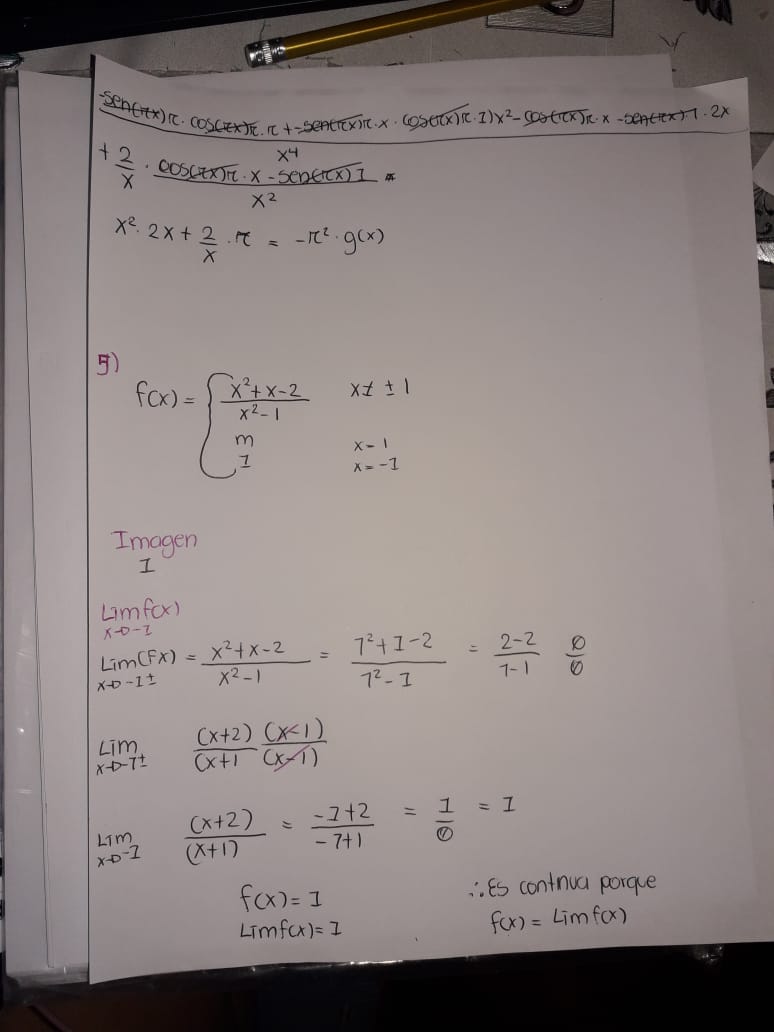 -sen(πx)π · cos(πx)π · π + -sen(πx)π · x · cos(πx)π · 1)x² - cos(πx)π · x - sen(πx) · 1 · 2x
x⁴
+ 2/x · cos(πx)π · x - sen(πx)1 / x² =
x² · 2x + 2/x · π = -π² · g(x)
5)
f(x) = { x²+x-2 / x²-1 x ≠ ± 1
m x = 1
1 x = -1
Imagen
1
Lim f(x)
x→-1
Lim(fx) = x²+x-2 / x²-1 = 1²+1-2 / 1²-1 = 2-2 / 1-1 0/0
x→-1±
Lim (x+2)(x-1) / (x+1 (x-1)
x→-1±
Lim (x+2) / (x+1) = -1+2 / -1+1 = 1/0 = 1
x→-1
f(x) = 1 ∴ Es continua porque
Lim f(x) = 1 f(x) = Lim f(x)